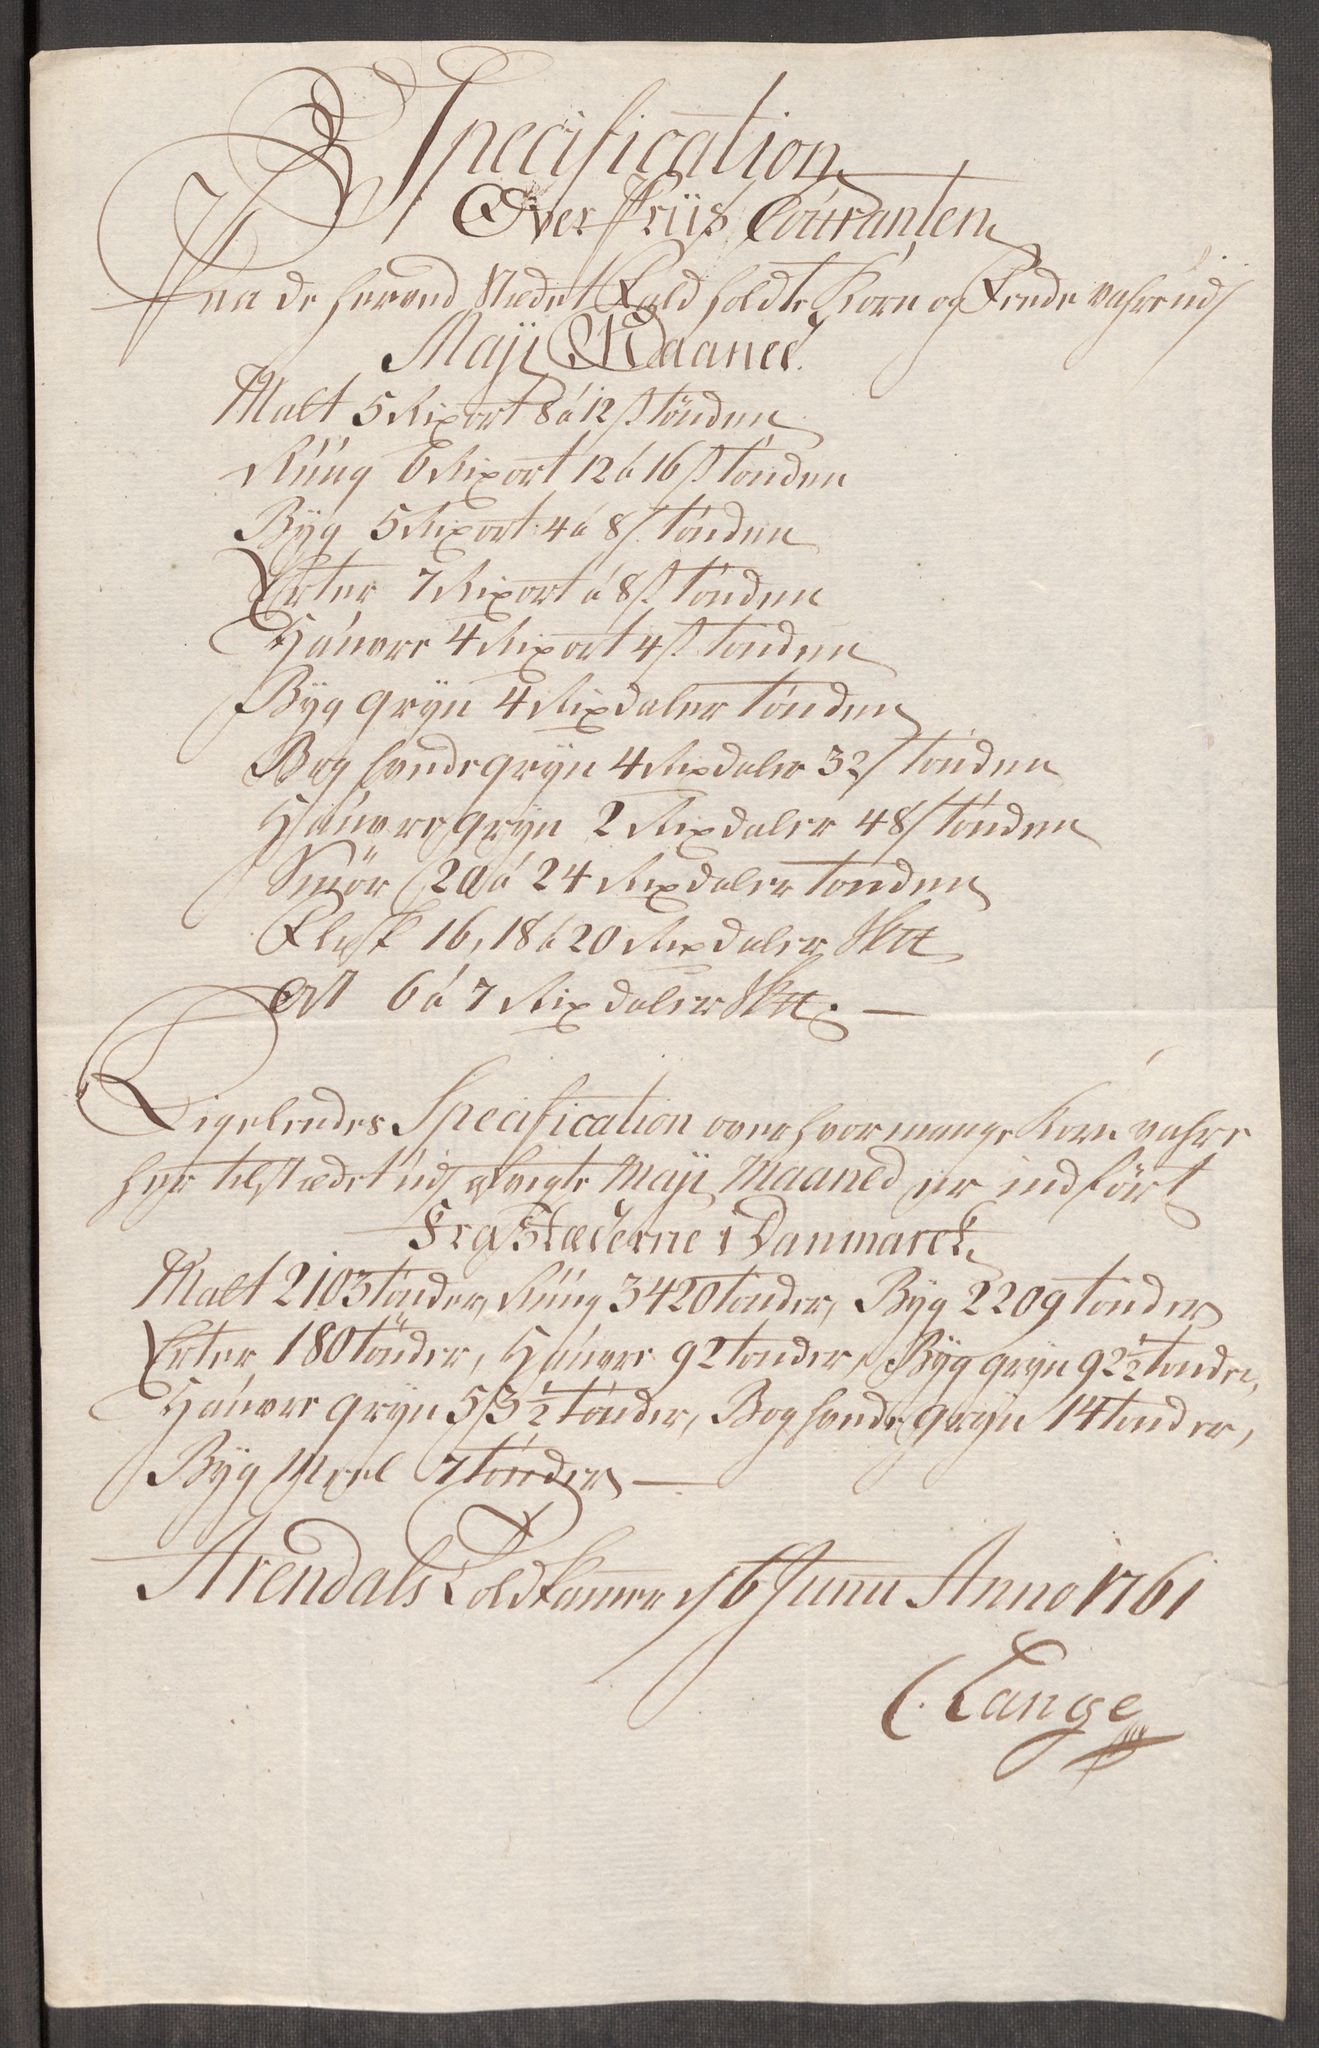 Specification
Over Priis Couranten
Paa de herved Stædet fald holdte Korn og Fede vahre udj
Maji Maaned.
Malt 5 Rixort 8 á 12 s tönden
Rüüg 6 Rixort 12 á 16 s tönden
Byg 5 Rixort 4 á 8 s. tönden
Erter 7 Rixort á 8 s. tönden
Haúvre 4 Rixort 4 s. tönden
Byg gryn 4 Rixdaler tönden
Bog hvede gryn 4 Rixdaler 32 s tönden
Haúvre gryn 2 Rixdaler 48 s tönden
Smör 20 á 24 Rixdaler tönden
Flesk 16, 18 á 20 Rixdaler Sktt
Ost 6 á 7 Rixdaler Sktt. —
Ligeledes Specification over hvor mange Korn vahre
her til stædet udj afvigte Maji Maaned er indfört
Fra Stæderne i Danmarck
Malt 2103 tönder, Rüüg 3420 tönder, Byg 2209 tönder
Erter 180 tönder, Haúvre 92 tönder, Byg gryn 92 1/2 tönder,
Haúvre gryn 53 1/2 tönder, Bog hvede gryn 14 tönder,
Byg Meel 7 tönder —
Arendals Toldkamer d 6 Junii Anno 1761
C. Lange